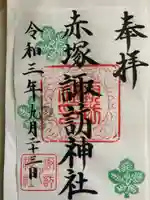 奉拝
赤塚諏訪神社
令和三年九月二十三日